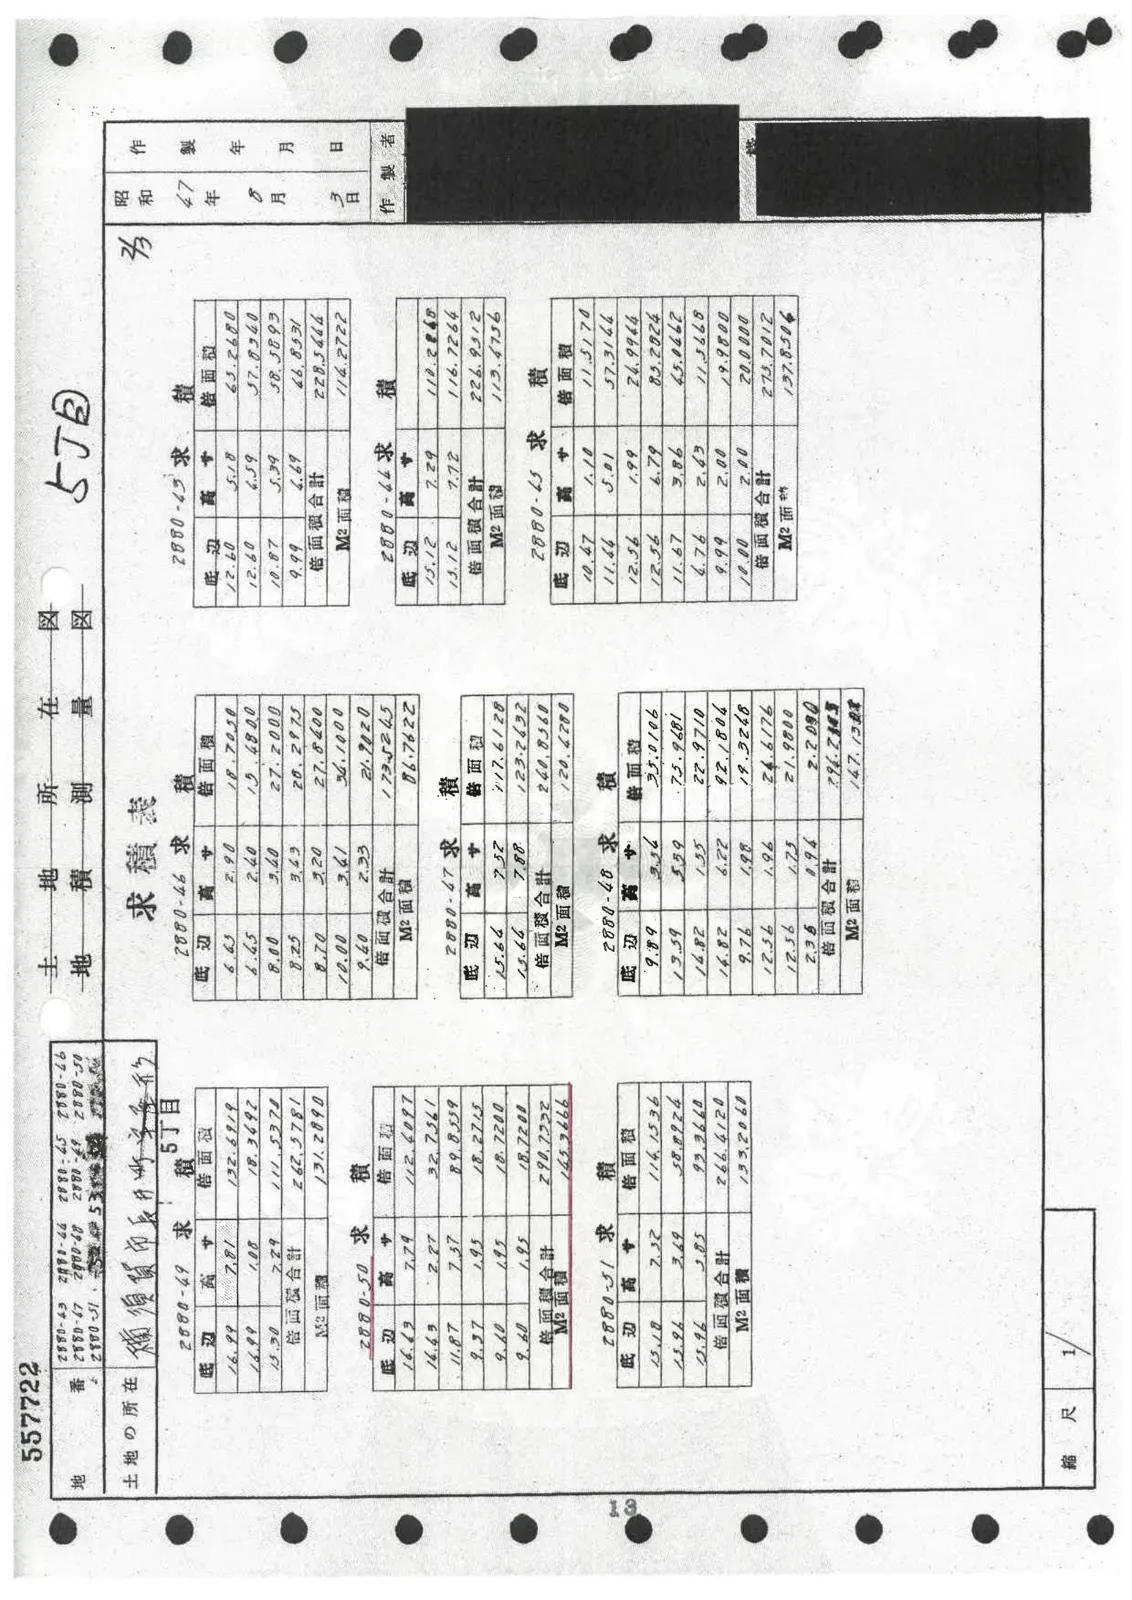 557722
地番
2880-43 2880-44 2880-45 2880-46
2880-47 2880-48 2880-49 2880-50
2880-51
土地の所在
横須賀市長井町
5丁目
土地所在図
地積測量図
5丁目
昭和47年8月3日
作製年月日
作製者
2/3
求積表
2880-49 求積
底辺 高サ 倍面積
16.99 7.81 132.6919
16.99 1.08 18.3492
15.30 7.29 111.5370
倍面積合計 262.5781
M2面積 131.2890
2880-50 求積
底辺 高サ 倍面積
14.43 7.79 112.4097
14.43 2.27 32.7561
11.87 7.57 89.8559
9.37 1.95 18.2715
9.60 1.95 18.7200
9.60 1.95 18.7200
倍面積合計 290.7332
M2面積 145.3666
2880-51 求積
底辺 高サ 倍面積
15.18 7.52 114.1536
15.96 3.69 58.8924
15.96 5.85 93.3660
倍面積合計 266.4120
M2面積 133.2060
2880-46 求積
底辺 高サ 倍面積
6.45 2.90 18.7050
6.45 2.40 15.4800
8.00 3.40 27.2000
8.25 3.43 28.2975
8.70 3.20 27.8400
10.00 3.41 34.1000
9.40 2.33 21.9020
倍面積合計 173.5245
M2面積 86.7622
2880-47 求積
底辺 高サ 倍面積
15.64 7.52 117.6128
15.64 7.88 123.2432
倍面積合計 240.8560
M2面積 120.4280
2880-48 求積
底辺 高サ 倍面積
9.89 3.54 35.0106
13.59 5.59 75.9681
14.82 1.55 22.9710
14.82 6.22 92.1804
9.76 1.98 19.3248
12.56 1.96 24.6176
12.56 1.75 21.9800
0.94 2.2090
倍面積合計
M2面積
2880-43 求積
底辺 高サ 倍面積
12.60 5.18 65.2680
12.60 4.59 57.8340
10.87 5.39 58.5893
9.99 4.69 46.8531
倍面積合計 228.5444
M2面積 114.2722
2880-44 求積
底辺 高サ 倍面積
15.12 7.29 110.2248
15.12 7.72 116.7264
倍面積合計 226.9512
M2面積 113.4756
2880-45 求積
底辺 高サ 倍面積
10.47 1.10 11.5170
11.44 5.01 57.3144
12.56 1.99 24.9944
12.56 6.79 85.2824
11.67 3.86 45.0462
4.76 2.43 11.5668
9.99 2.00 19.9800
10.00 2.00 20.0000
倍面積合計 275.7012
M2面積 137.8506
縮尺 1/
13